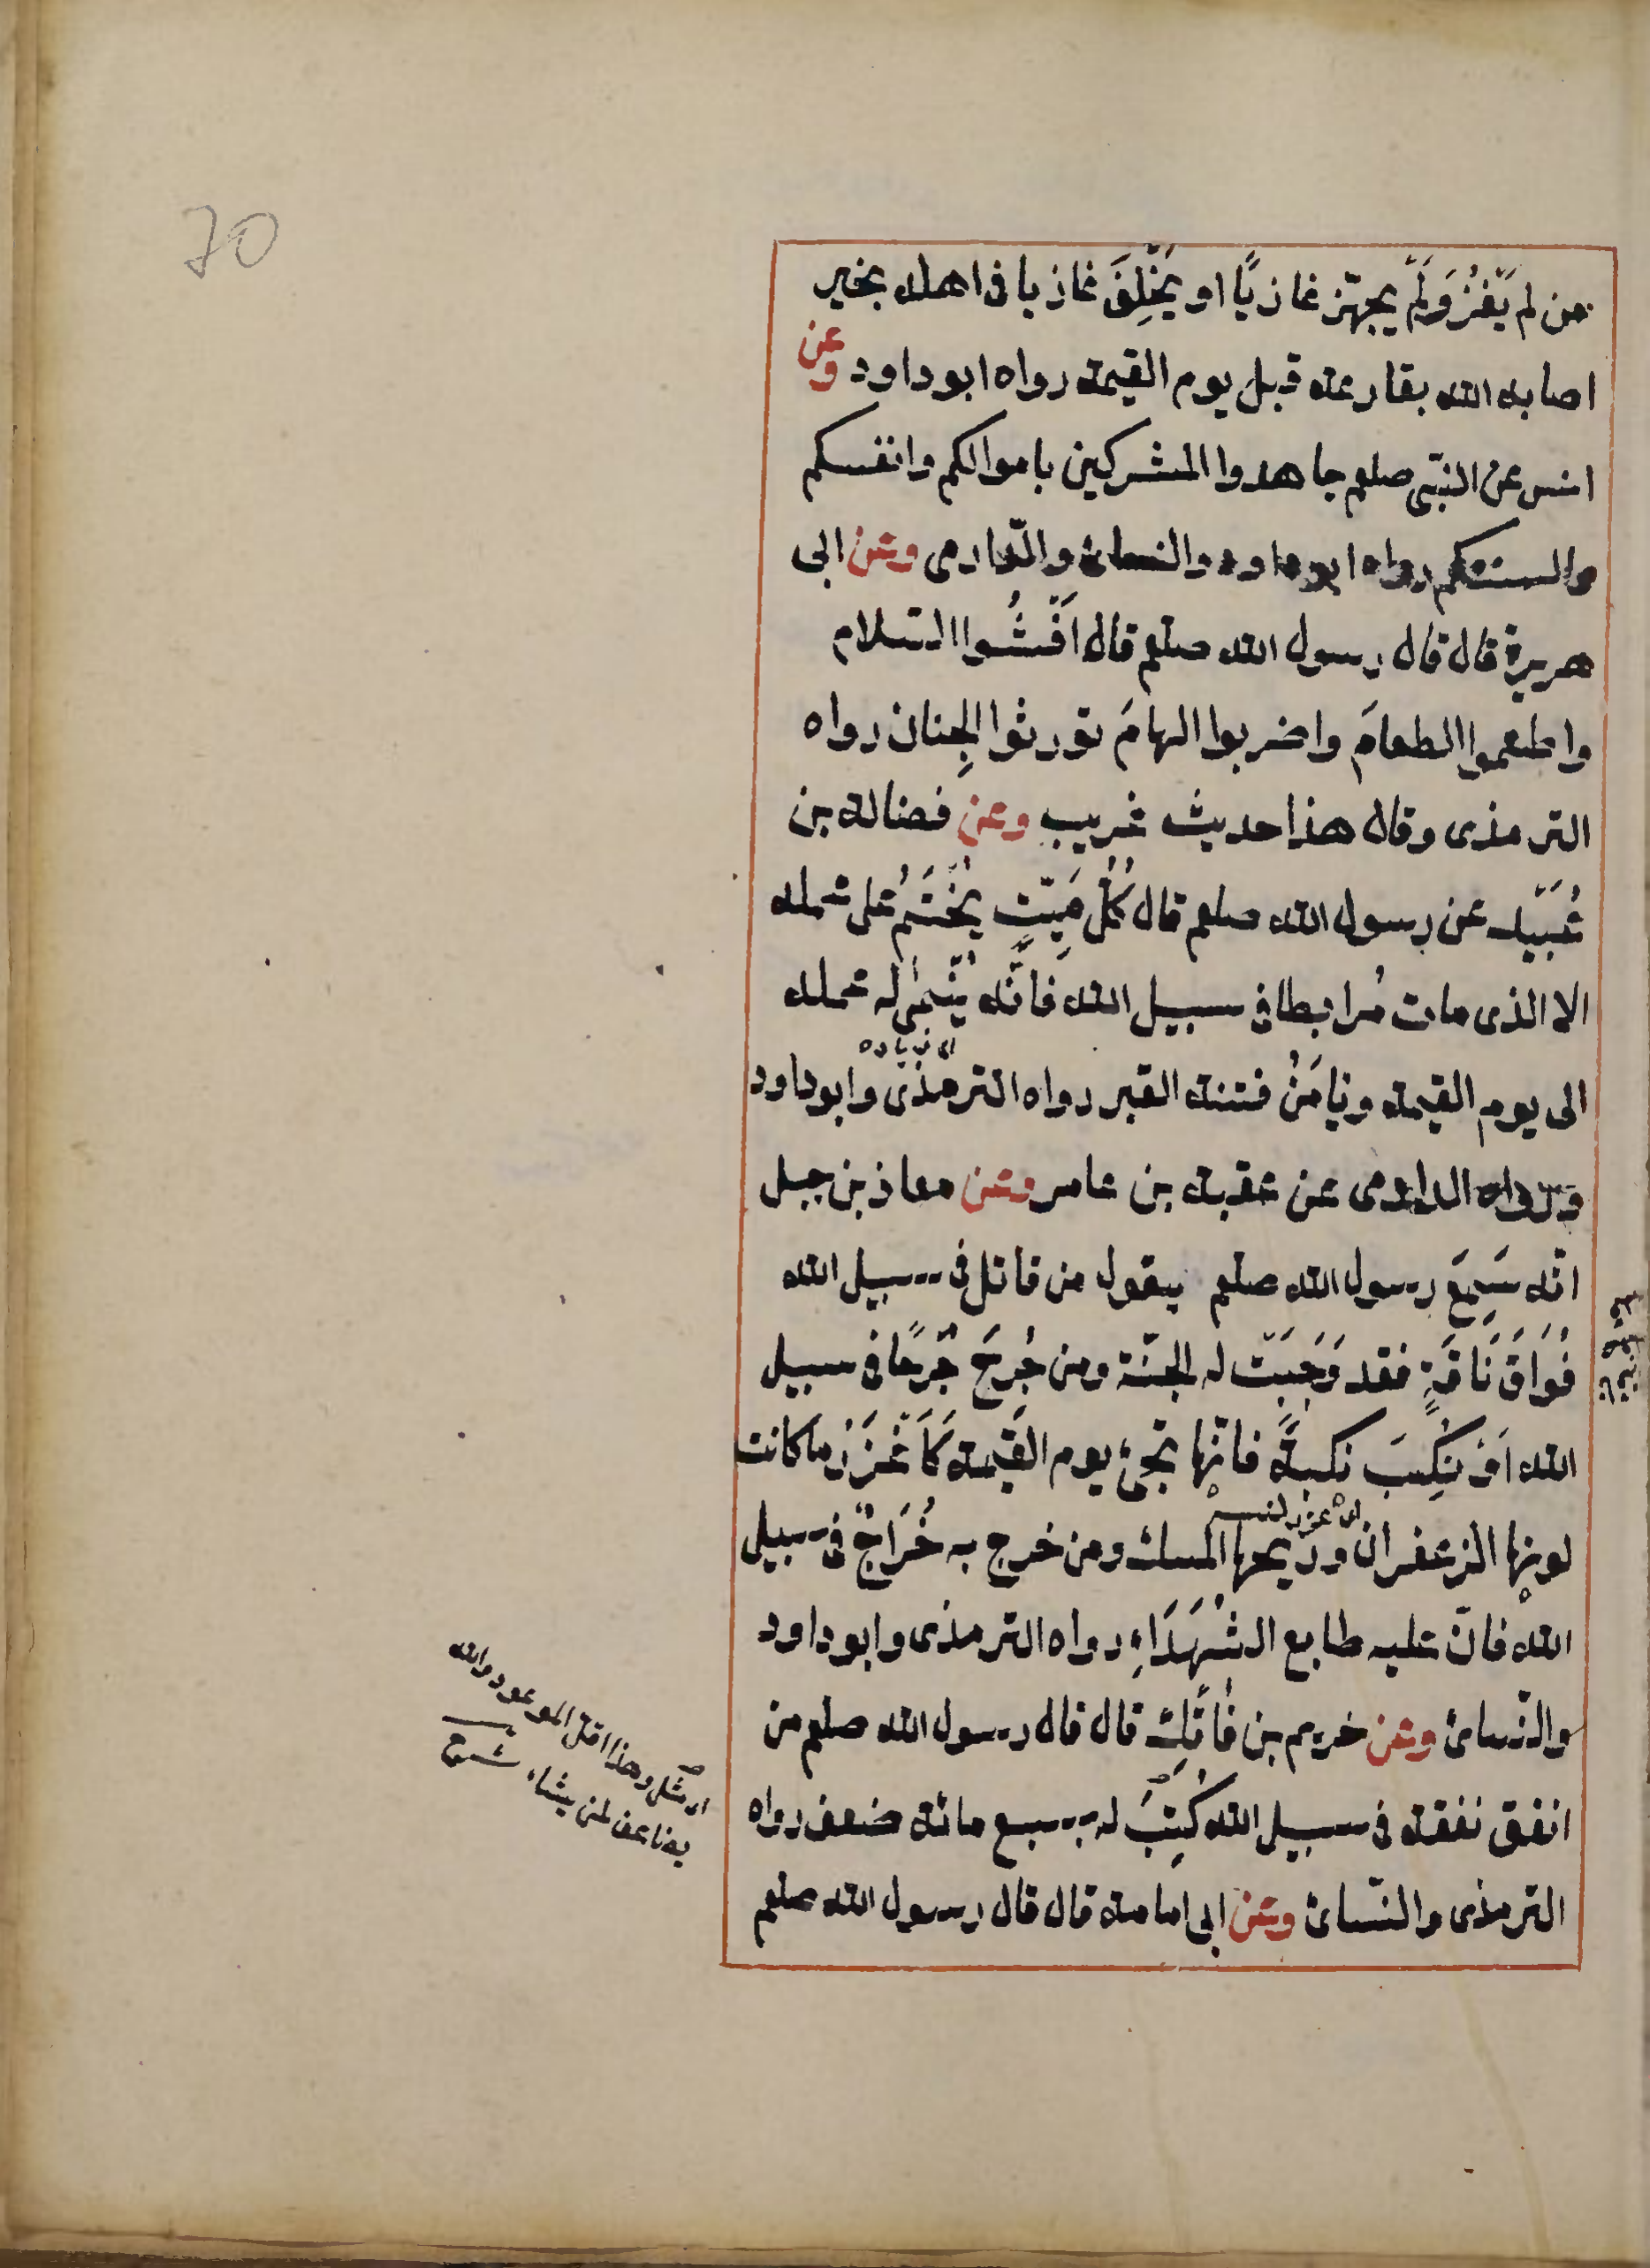 70
من لم يَغْزُ وَلَمْ يجهّز غازيًا او يَخْلِفَ غازيا فى اهله بخير
اصابه الله بقارعة قبل يوم القيمة رواه ابو داود وعن
انس عن النبّى صلعم جاهدوا المشركين باموالكم وانفسكم
والسنتكم رواه ابو داود والنسائ والدّارمى وعن ابى
هريرة قال قال رسول الله صلعم قال اَفْشُوا السّلام
واطعموا الطعامَ واضربوا الهامَ تورثوا الجِنان رواه
الترمذى وقال هذا حديث غريب وعن فضالة بن
عُبَيْد عن رسول الله صلعم قال كُلُّ مَيِّتٍ يُخْتَمُ على عمله
الا الذى مات مُرابطا فى سبيل الله فانّه يُنْمىٰ له عمله
اى زياده
الى يوم القيمة ويَامَنُ فتنة القبر رواه الترمذى وابوداود
ورواه الدارمى عن عقبة بن عامر وعن معاذ بن جبل
انّه سَمِعَ رسول الله صلعم يقول من قاتل فى سبيل الله
فُوَاقَ نَاقَةٍ فقد وَجَبَتْ له الجنّة ومن جُرِحَ جُرْحًا فى سبيل
الله اَوْ نُكِبَ نكبةً فانّها تجئ يوم القيمة كَاَغْزَرِ ما كانت
لونها الزعفران وريحها المسك ومن خرج به خُرَاجٌ فى سبيل
الله فانّ عليه طابع الشُهَدَاءِ رواه الترمذى وابو داود
والنّسائ وعن خريم بن فَاتِكٍ قال قال رسول الله صلعم من
انفق نفقة فى سبيل الله كُتِبَ له بسبع مائة ضعف رواه
الترمذى والنّسائ وعن ابى امامة قال قال رسول الله صلعم
وهذا اقل الموعود والله
يضاعف لمن يشاء شرح